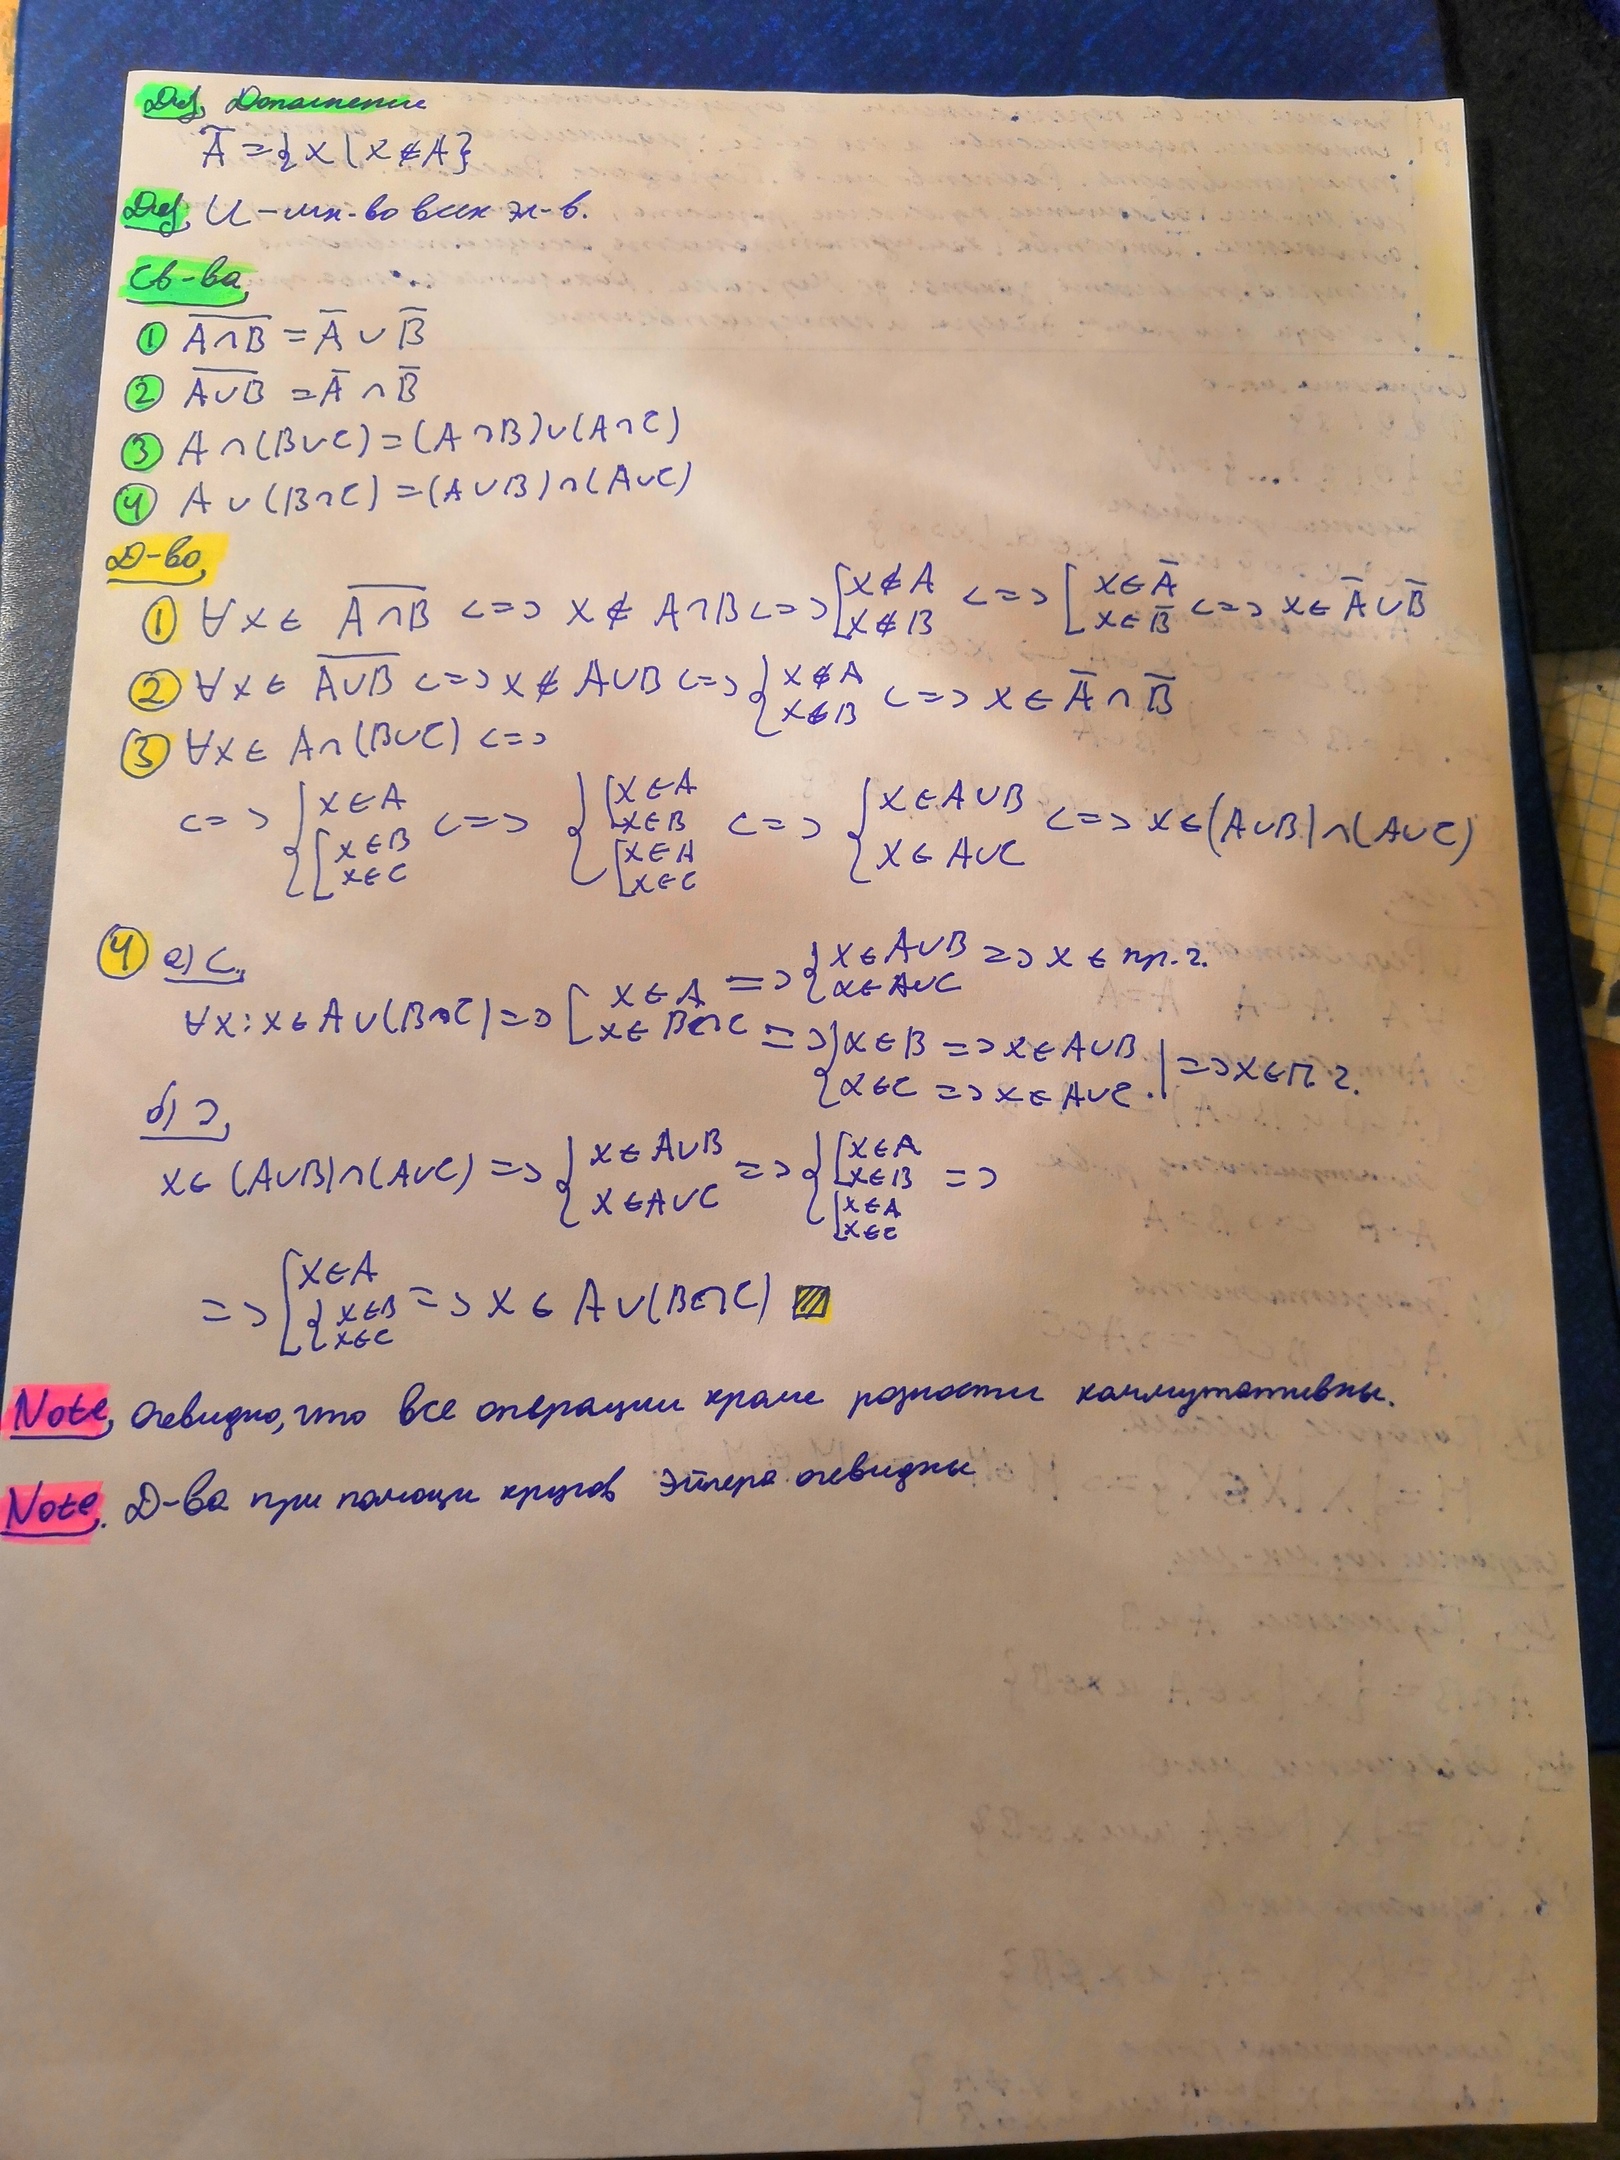 Def. Дополнение
Ā = {x | x ∉ A}
Def. U – мн-во всех эл-в.
Св-ва
① \overline{A∩B} = Ā ∪ B̄
② \overline{A∪B} = Ā ∩ B̄
③ A∩(B∪C) = (A∩B)∪(A∩C)
④ A∪(B∩C) = (A∪B)∩(A∪C)
Д-во
① ∀x ∈ \overline{A∩B} <=> x ∉ A∩B <=> [x ∉ A x ∉ B <=> [x ∈ Ā x ∈ B̄ <=> x ∈ Ā∪B̄
② ∀x ∈ \overline{A∪B} <=> x ∉ A∪B <=> {x ∉ A x ∉ B <=> x ∈ Ā ∩ B̄
③ ∀x ∈ A∩(B∪C) <=>
<=> {x ∈ A [x ∈ B x ∈ C <=> {[x ∈ A x ∈ B [x ∈ A x ∈ C <=> {x ∈ A∪B x ∈ A∪C <=> x ∈ (A∪B)∩(A∪C)
④ а) ⊂.
∀x: x ∈ A∪(B∩C) => [x ∈ A => {x ∈ A∪B x ∈ A∪C => x ∈ пр.ч.
x ∈ B∩C => {x ∈ B => x ∈ A∪B x ∈ C => x ∈ A∪C. | => x ∈ п.ч.
б) ⊃.
x ∈ (A∪B)∩(A∪C) => {x ∈ A∪B x ∈ A∪C => {[x ∈ A x ∈ B [x ∈ A x ∈ C =>
=> [x ∈ A {x ∈ B x ∈ C => x ∈ A∪(B∩C)
Note. Очевидно, что все операции кроме разности коммутативны.
Note. Д-ва при помощи кругов Эйлера очевидны